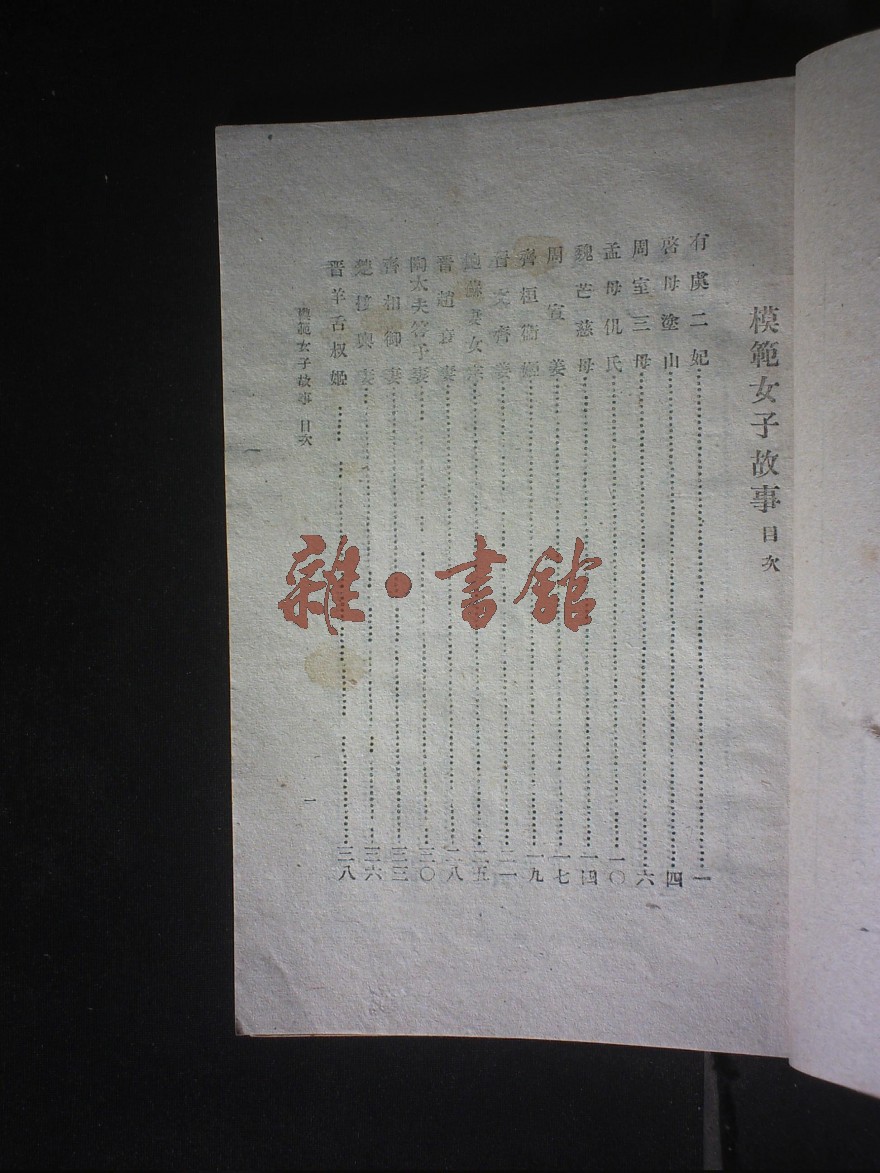 模範女子故事 目次
有虞二妃……一
啓母塗山……四
周室三母……六
孟母仉氏……一〇
魏芒慈母……一四
周宣姜……一七
齊桓衞姬……一九
晉文齊姜……二一
鮑蘇妻女宗……二五
晉趙衰妻……二八
陶大夫答子妻……三〇
齊相御妻……三三
楚接輿妻……三六
晋羊舌叔姬……三八
模範女子故事 目次
一
雜·書館